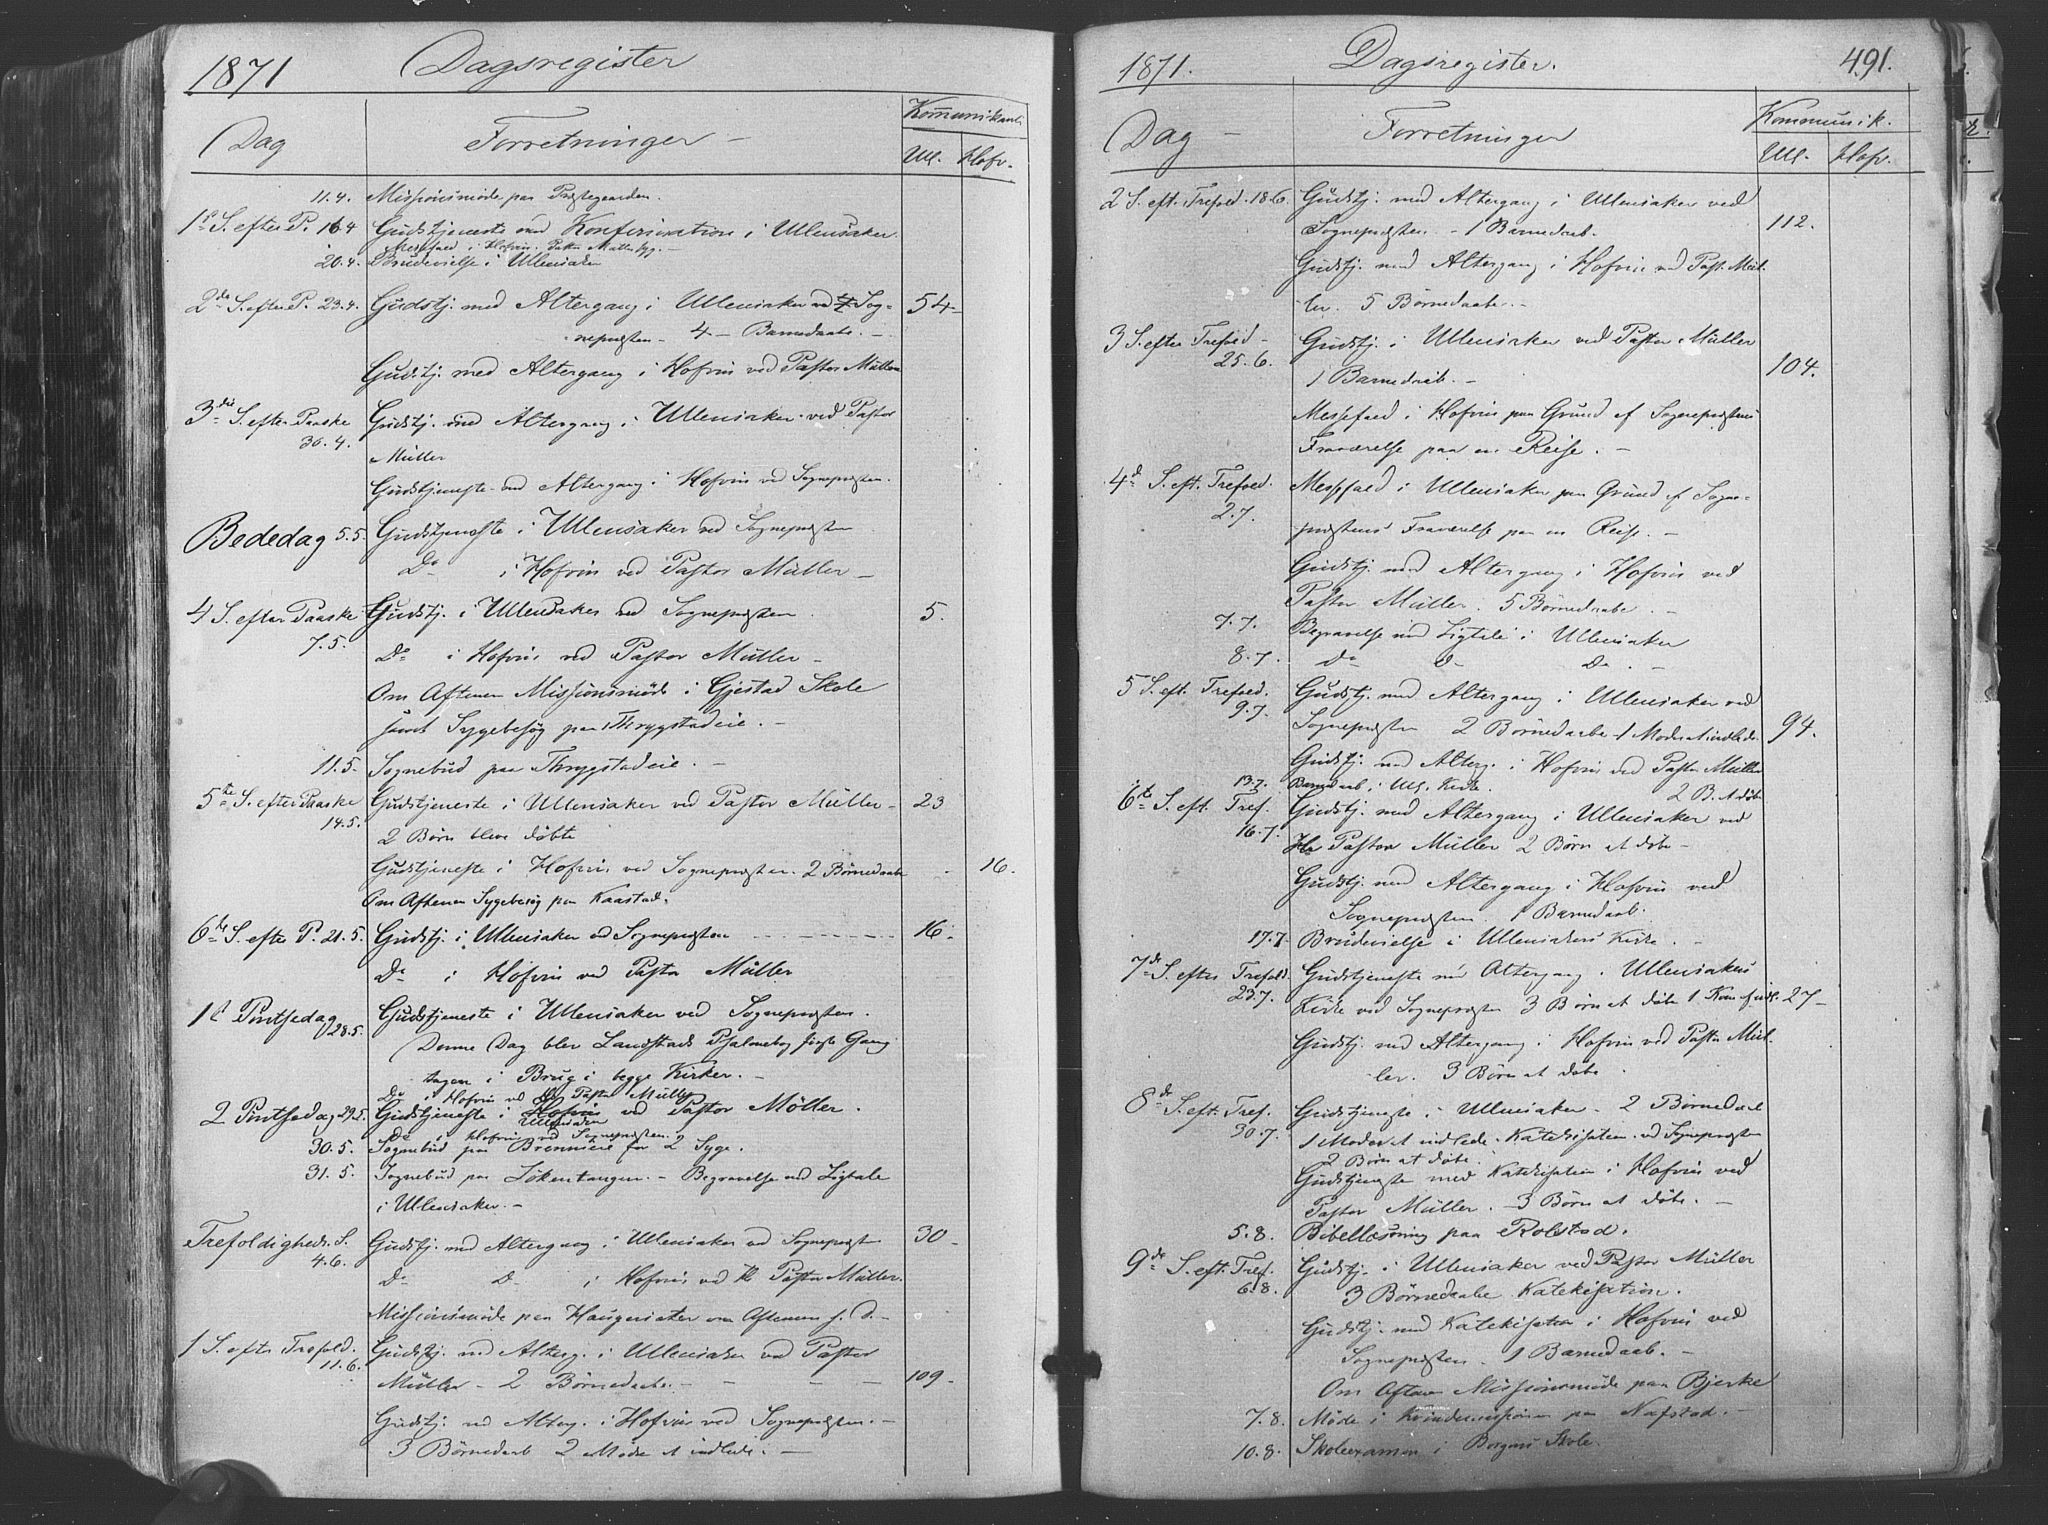 1871 Dagsregister
Dag Forretninger Kommunikanter
Ull. Hofv.
11.4. Missionsmøde paa Præstegaarden.
1ste S. efter P. 16.4 Gudstjeneste med Konfirmation i Ullensaker.
Messefald i Hofvin. Pastor Müller syg. —
20.4. Brudevielse i Ullensaker
2den S. efter P. 23.4. Gudstj. med Altergang i Ullensaker ved Sog- 54
nepræsten — 4 — Barnedaabe. —
Gudstj. med Altergang i Hofvin ved Pastor Müller
3die S. efter Paaske Gudstj. med Altergang i Ullensaker ved Pastor
30.4. Müller
Gudstjeneste med Altergang i Hofvin ved Sognepræsten.
Bededag 5.5. Gudstjeneste i Ullensaker ved Sognepræsten
Do i Hofvin ved Pastor Müller —
4 S. efter Paaske Gudstj. i Ullensaker ved Sognepræsten 5.
7.5. Do i Hofvin ved Pastor Müller —
Om Aftenen Missionsmøde i Gjestad Skole
samt Sygebesøg paa Thrygstadeie. —
11.5. Sognebud paa Thrygstadeie. —
5te S. efter Paaske Gudstjeneste i Ullensaker ved Pastor Müller — 23
14.5. 2 Børn bleve døbte
Gudstjeneste i Hofvin ved Sognepræsten. 2 Børnedaabe 16.
Om Aftenen Sygebesøg paa Kaastad.
6te S. efter P. 21.5. Gudstj. i Ullensaker ved Sognepræsten 16.
Do i Hofvin ved Pastor Müller
1ste Pintsedag 28.5. Gudstjeneste i Ullensaker ved Sognepræsten.
Denne Dag blev Landstads Psalmebog første Gang
tagen i Brug i begge Kirker. —
Do i Hofvin ved Pastor Müller
2 Pintsedag 29.5. Gudstjeneste i Hofvin ved Pastor Möller.
Ullensaker
Do i Hofvin ved Sognepræsten.
30.5. Sognebud paa Brenneie for 2 Syge.
31.5. Sognebud paa Løkentangen. — Begravelse med Ligtale
i Ullensaker. —
Trefoldigheds S. Gudstj. med Altergang i Ullensaker ved Sognepræst 30
4.6. Do D— i Hofvin ved Hr Pastor Müller.
Missionsmøde paa Haugensæter om Aftenen s. D. —
1 S. efter Trefold. Gudstj. med Alterg. i Ullensaker ved Pastor
11.6. Müller — 2 Børnedaabe. — — — — 109
Gudstj. med Alterg. i Hofvin ved Sognepræsten. —
3 Børnedaab 2 Mødre at indlede. —
1871. Dagsregister. 491.
Dag — Forretninger Kommunik.
Ull. Hofv.
2 S. eft. Trefold. 18.6. Gudstj. med Altergang i Ullensaker ved
Sognepræsten — 1 Barnedaab. 112.
Gudstj. med Altergang i Hofvin ved Past. Mül-
ler. 5 Børnedaabe. —
3 S. efter Trefold — Gudstj. i Ullensaker ved Pastor Müller
25.6. 1 Barnedaab. — 104.
Messefald i Hofvin paa Grund af Sognepræstens
Fraværelse paa en Reise. —
4de S. eft. Trefold. Messefald i Ullensaker paa Grund af Sogne-
2.7. præstens Fraværelse paa en Reise. —
Gudstj. med Altergang i Hofvin ved
Pastor Müller. 5 Børnedaabe. —
7.7. Begravelse med Ligtale i Ullensaker
8.7. Do D— Do. —
5 S. eft. Trefold. Gudstj. med Altergang i Ullensaker ved
9.7. Sognepræsten 2 Børnedaabe 1 Moder at indlede 94.
Gudstj. med Alterg. i Hofvin ved Pastor Müller
2 B. at døbe
13.7. Barnedaab i Ull. Kirke.
6te S. eft. Tref. Gudstj. med Altergang i Ullensaker ved
16.7. Hr Pastor Müller 2 Børn at døbe —
Gudstj. med Altergang i Hofvin ved
Sognepræsten. 1 Barnedaab.
17.7 Brudevielse i Ullensakers Kirke. —
7de S. efter Trefold. Gudstjeneste med Altergang i Ullensakers
23.7. Kirke ved Sognepræsten 3 Børn at døbe 1 Kone indl. 27 —
Gudstj. med Altergang i Hofvin ved Pastor Mül-
ler. 3 Børn at døbe.
8de S. eft. Tref. Gudstjeneste i Ullensaker — 2 Børnedaabe
30.7. 1 Moder at indlede. Katekisation ved Sognepræsten
2 Børn at døbe.
Gudstjeneste med Katekisation i Hofvin ved
Pastor Müller. — 3 Børn at døbe. —
5.8. Bibellæsning paa Rolstad.
9de S. eft. Tref. Gudstj. i Ullensaker ved Pastor Müller
6.8. 3 Børnedaabe Katekisation.
Gudstj. med Katekisation i Hofvin ved
Sognepræsten. 1 Barnedaab. —
Om Aftenen Missionsmøde paa Bjerke
7.8. Møde i Kvindemissionen paa Nafstad. —
10.8. Skoleexamen i Borgens Skole.